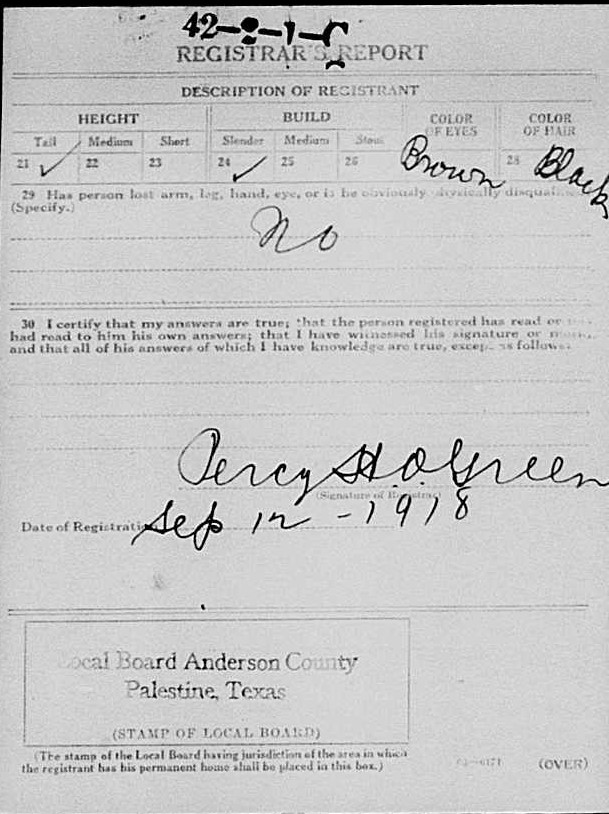 42-2-1-C
REGISTRAR'S REPORT
DESCRIPTION OF REGISTRANT
HEIGHT BUILD COLOR OF EYES COLOR OF HAIR
Tall Medium Short Slender Medium Stout
21 ✓ 22 23 24 ✓ 25 26 Brown 28 Black
29 Has person lost arm, leg, hand, eye, or is he obviously physically
(Specify.)
No
30 I certify that my answers are true; that the person registered has read or
had read to him his own answers; that I have witnessed his signature or
and that all of his answers of which I have knowledge are true, except as follows:
Percy H.O. Green
(Signature of Registrar)
Date of Registration Sep 12-1918
Local Board Anderson County
Palestine, Texas
(STAMP OF LOCAL BOARD)
(The stamp of the Local Board having jurisdiction of the area in which
the registrant has his permanent home shall be placed in this box.)
(OVER)